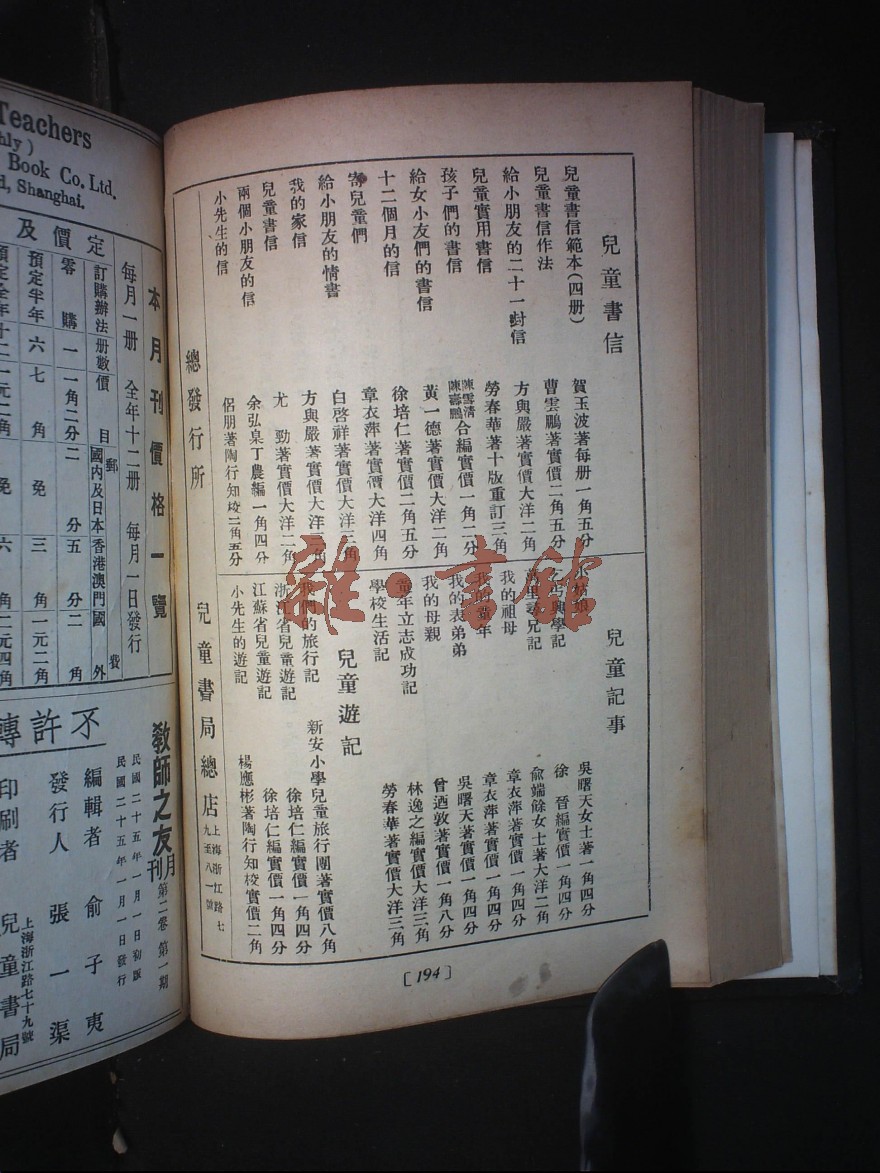 兒童書信
兒童書信範本(四册) 賀玉波著每册一角五分
兒童書信作法 曹雲鵬著實價二角五分
給小朋友的二十一封信 方與嚴著實價大洋二角
兒童實用書信 勞春華著十版重訂三角
孩子們的書信 陳雪清 陳壽鵬 合編實價一角二分
給女小友們的書信 黃一德著實價大洋二角
十二個月的信 徐培仁著實價二角五分
寄兒童們 章衣萍著實價大洋四角
給小朋友的情書 白啓祥著實價大洋三角
我的家信 方與嚴著實價大洋二角
兒童書信 尤勁著實價大洋二角
兩個小朋友的信 余弘臬丁農編一角四分
小先生的信 侶朋著陶行知校二角五分
兒童記事
吳曙天女士著一角四分
徐晉編實價一角四分
尋兄記 俞端馀女士著大洋二角
我的祖母 章衣萍著實價一角四分
我的童年 章衣萍著實價一角四分
我的表弟弟 吳曙天著實價一角四分
我的母親 曾迺敦著實價一角八分
童年立志成功記 林逸之編實價大洋三角
學校生活記 勞春華著實價大洋三角
兒童遊記
我們的旅行記 新安小學兒童旅行團著實價八角
浙江省兒童遊記 徐培仁編實價一角四分
江蘇省兒童遊記 徐培仁編實價一角四分
小先生的遊記 楊應彬著陶行知校實價二角
總發行所 兒童書局總店 上海浙江路七九至八一號
[194]
雜·書館
Teachers
Book Co. Ltd.
Shanghai.
本月刊價格一覽
每月一册 全年十二册 每月一日發行
定價及
訂購辦法 册數 價目 郵費
國內及日本 香港澳門 國外
零購 一 一角二分 二分 五分 二角
預定半年 六 七角 免 三角 一元二角
預定全年 十二 一元二角 免 六角 二元四角
不許轉
教師之友月刊 第二卷 第一期
民國二十五年一月一日初版
民國二十五年一月一日發行
編輯者 俞子夷
發行人 張一渠
上海浙江路七十九號
印刷者 兒童書局